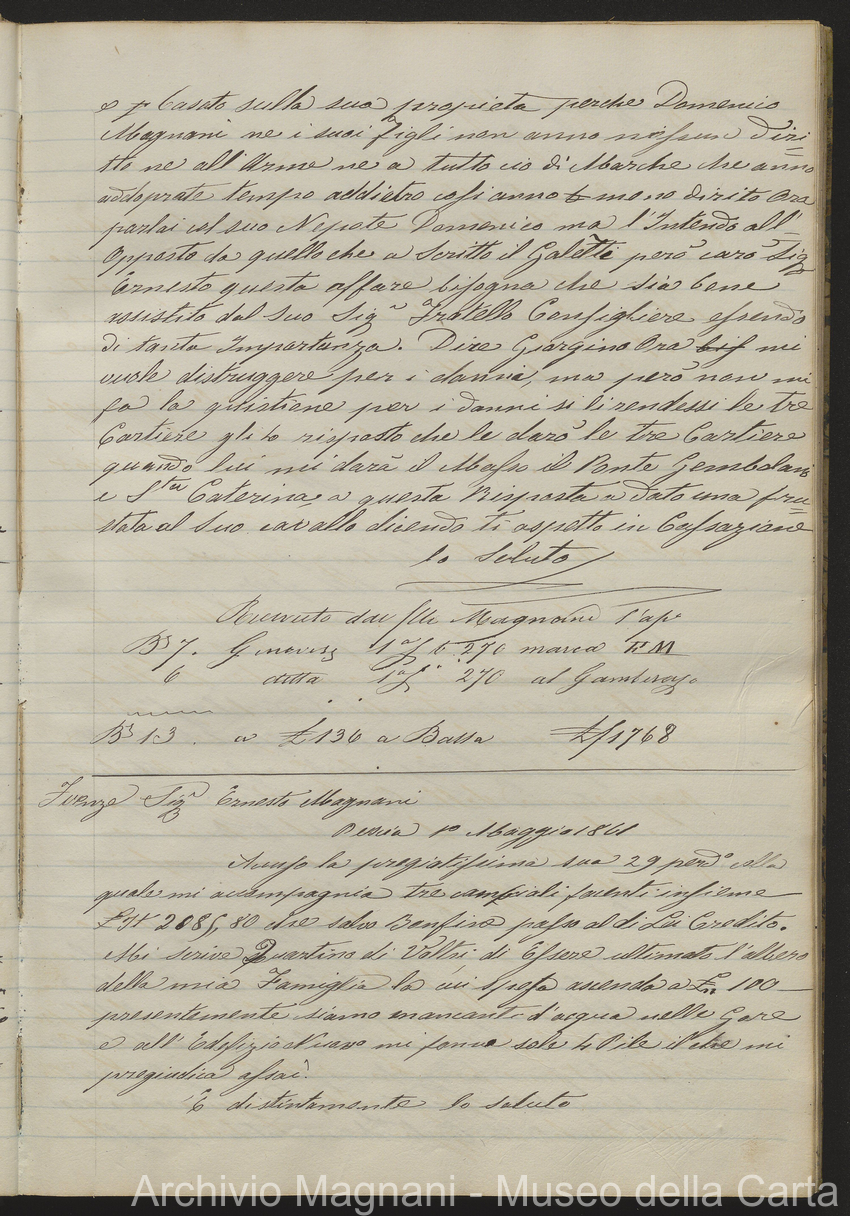 e p Casato sulla sua propieta perche Domenico
Magnani ne i suoi figli non anno nessun diri=
tto ne all'Arme ne a tutto cio di Marche che anno
addoprate tempo addietro cosi anno meno dirito Ora
parlai col suo Nepote Domenico ma l'Intendo all'=
Opposto da quello che a Scritto il Galetti però caro Sig
Ernesto questa affare bisogna che sia bene
assistito dal suo Sigr Fratello Consigliere essendo
di tanta Importanza. Dice Giorgino Ora bis mi
vuole distruggere per i danni, ma però non mi
fa la quistione per i danni si li rendessi le tre
Cartiere gli ho risposto che le darò le tre Cartiere
quando lui mi darà il Masso il Ponte Gembolani
e Sta Caterina, a questa Risposta a dato una fru=
stata al suo cavallo dicendo ti aspetto in Cassazione
lo Saluto
Ricevuto dai flli Magnani
Bs 7. Genovesi 1a f b 270 marca EM
6 detta 1a f 270 al Gambero
Bs 13. a £ 136 a Balla £ 1768
Firenze Sigr Ernesto Magnani
Pescia 1o Maggio 1861
Accuso la pregiatissima sua 29 perdo colla
quale mi accompagnia tre cambiali facenti insieme
2685,80 che salvo Bonfine passo al di Lei Credito.
Mi scrive Quartino di Voltri di Essere ultimato l'albero
della mia Famiglia la cui spesa ascenda a Ln 100
presentemente siamo mancanti d'acqua nelle Gore
e all'Edifizio Nuovo mi fanno sole 4 Pile il che mi
pregiudica assai.
E distintamente lo saluto
Archivio Magnani - Museo della Carta